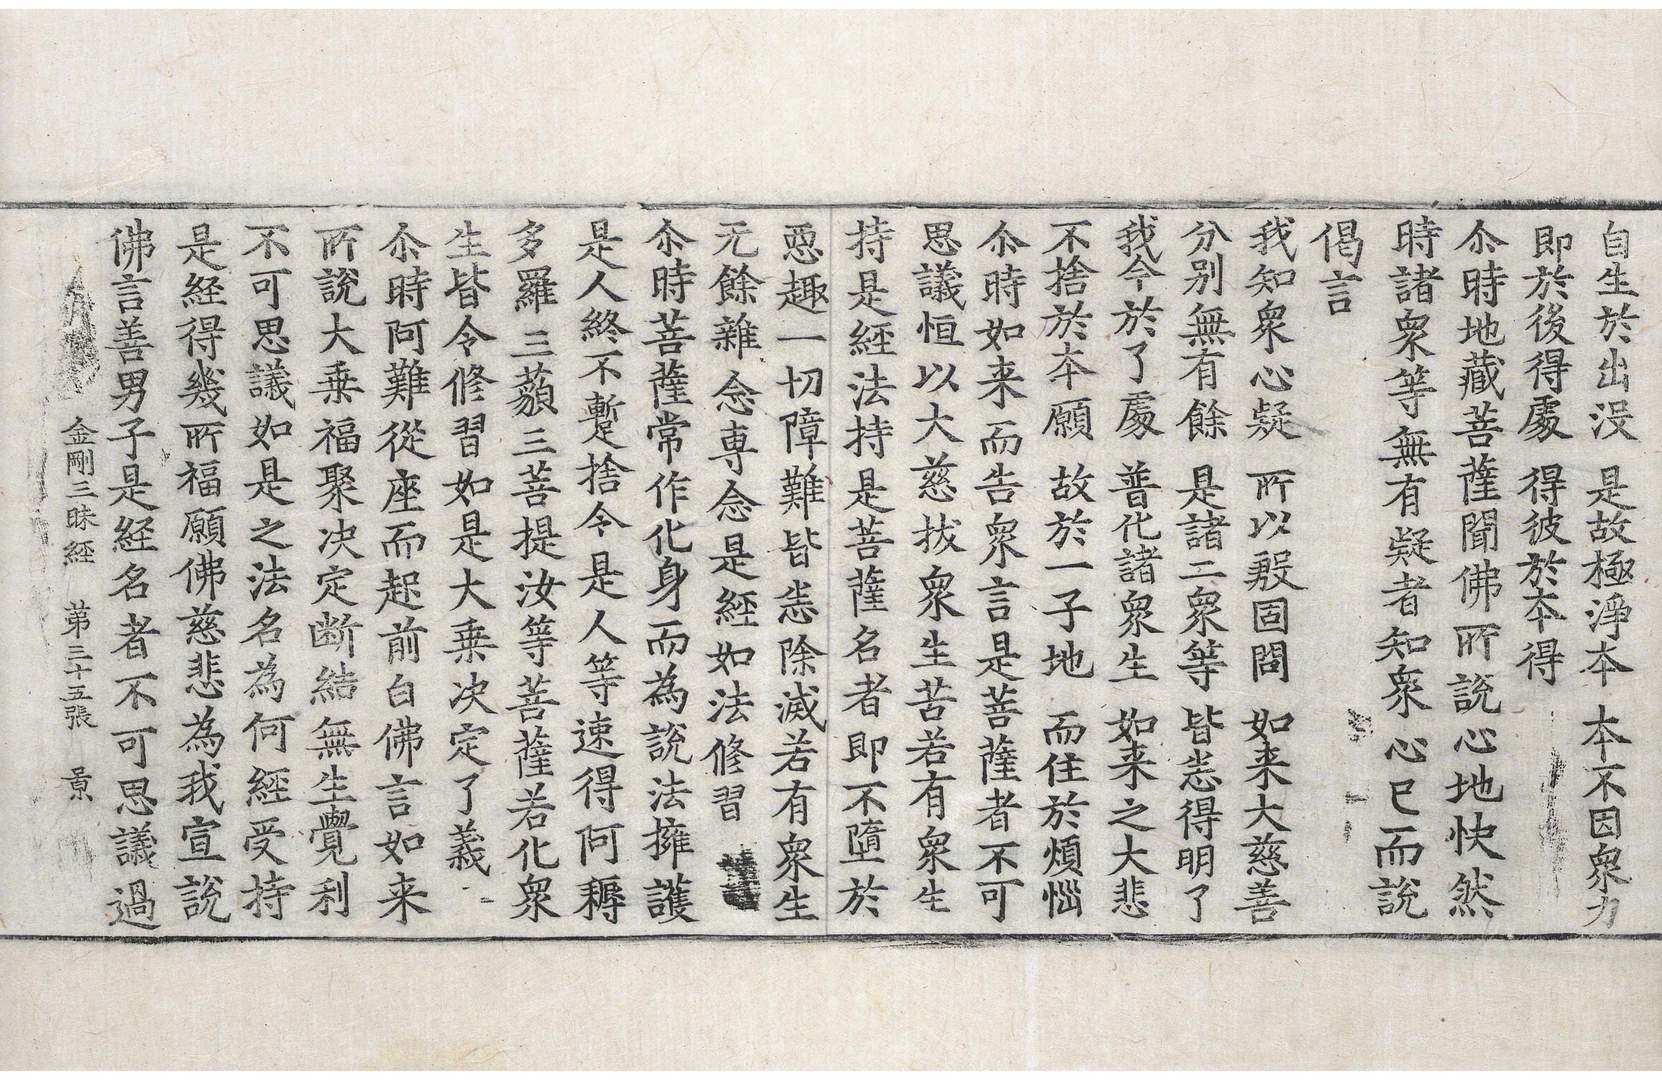 自生於出没　是故極淨本　本不因衆力
即於後得處　得彼於本得
尒時地藏菩薩聞佛所說心地快然
時諸衆等無有疑者知衆心已而說
偈言
我知衆心疑　所以殷固問　如来大慈善
分别無有餘　是諸二衆等　皆悉得明了
我今於了處　普化諸衆生　如来之大悲
不捨於本願　故於一子地　而住於煩惱
尒時如来而告衆言是菩薩者不可
思議恒以大慈拔衆生苦若有衆生
持是經法持是菩薩名者即不墮於
惡趣一切障難皆悉除滅若有衆生
无餘雜念專念是經如法修習
尒時菩薩常作化身而為說法擁護
是人終不蹔捨令是人等速得阿耨
多羅三藐三菩提汝等菩薩若化衆
生皆令修習如是大乗决定了義
尒時阿難從座而起前白佛言如来
所說大乗福聚决定断結無生覺利
不可思議如是之法名為何經受持
是經得幾所福願佛慈悲為我宣說
佛言善男子是經名者不可思議過
金剛三昧經　第三十五張　景